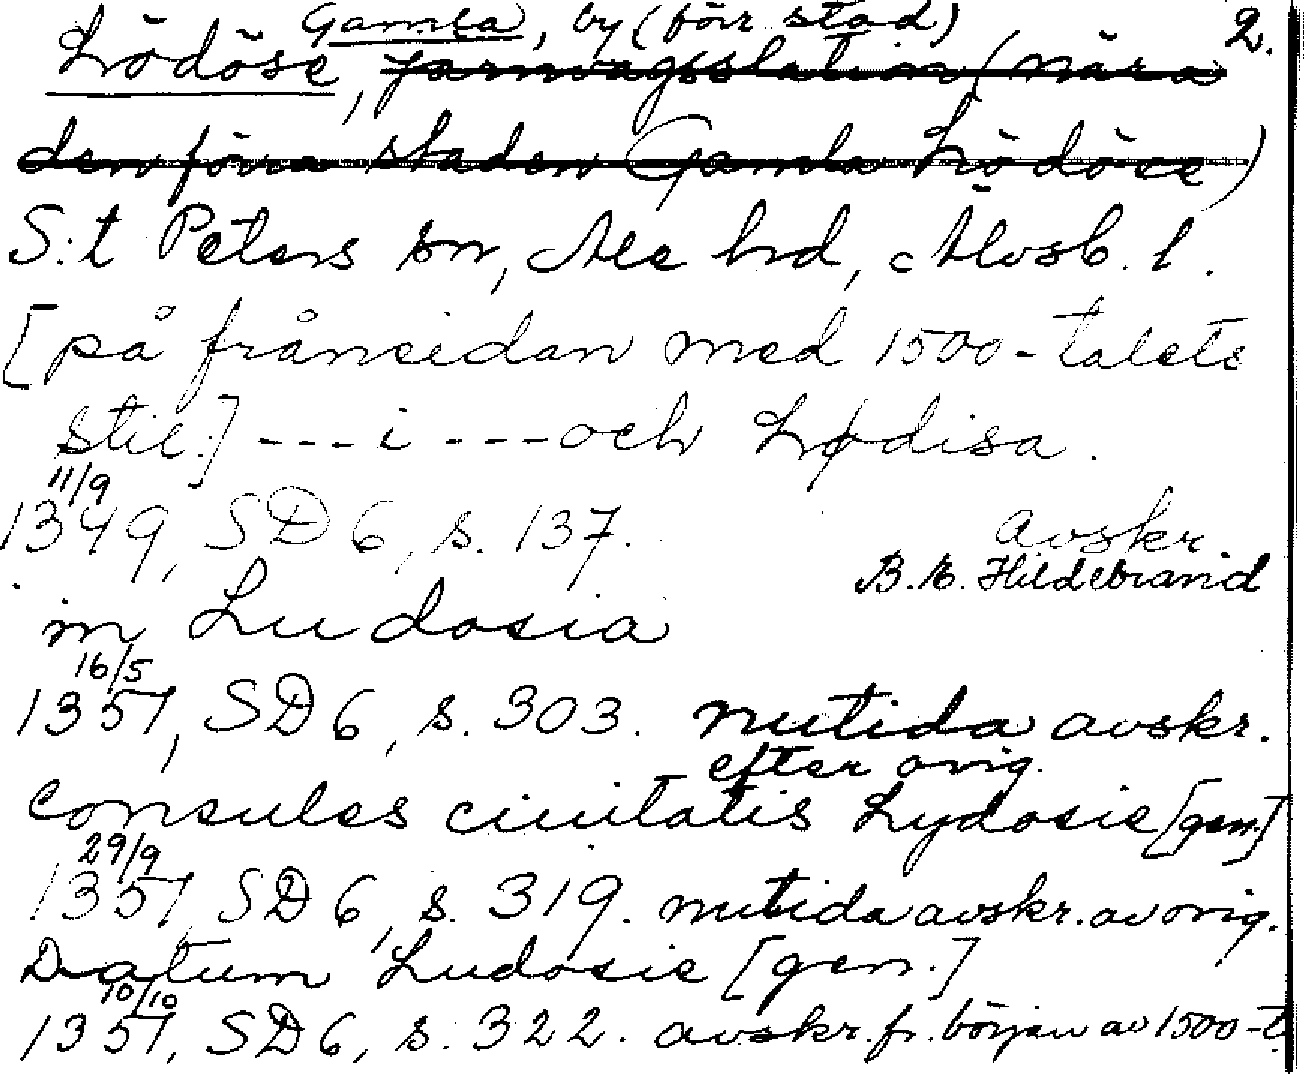 Gamla, by (förr stad) 2.
Lödöse, järnvägsstation (nära
den förra staden Gamla Lödöse)
S:t Peters sn, Ale hd, Älvsb. l.
[på frånsidan med 1500-talets
stil:] ---i ---och Lødisa.
11/9
1349, SD 6, s. 137. avskr.
B.E. Hildebrand
in Ludosia
16/5
1351, SD 6, s. 303. nutida avskr.
efter orig.
Consules ciuitatis Lydosie [gen.]
29/9
1351, SD 6, s. 319. nutida avskr. av orig.
Datum Ludosie [gen.]
10/10
1351, SD 6, s. 322. avskr. fr. början av 1500-t.